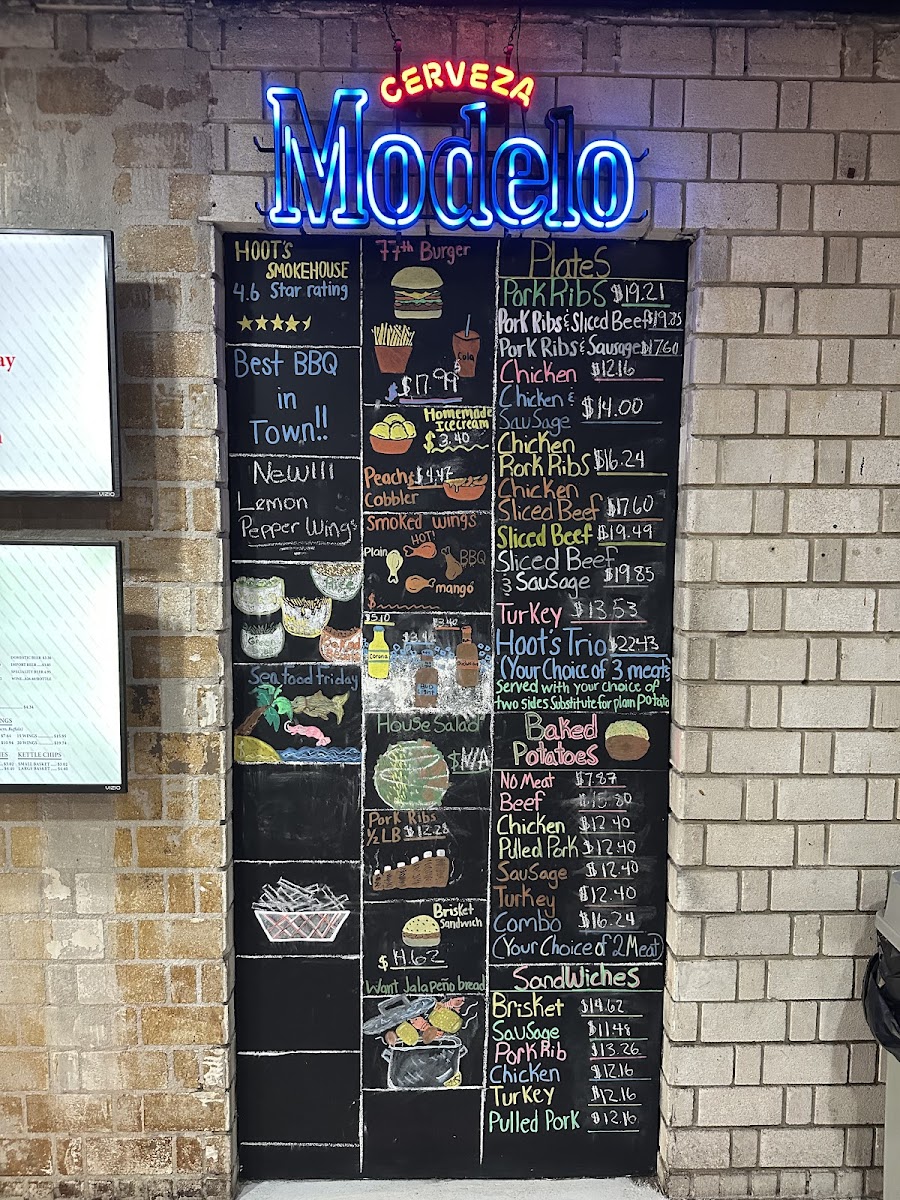 CERVEZA
Modelo
HOOT'S
SMOKEHOUSE
4.6 Star rating
Best BBQ
in
Town!!
New!!!
Lemon
Pepper Wings
Rice
Seafood Friday
77th Burger
Cola
$17.99
Homemade
Icecream
$3.40
Peach $4.47
Cobbler
Smoked Wings
HOT!
Plain
BBQ
mango
$
$5.10
$3.40
Corona
Bud
Light
House Salad
$N/A
Pork Ribs
½ LB $12.28
Brisket
Sandwich
$14.62
Want Jalapeño bread
Plates
Pork Ribs $19.21
Pork Ribs & Sliced Beef $19.85
Pork Ribs & Sausage $17.60
Chicken $12.16
Chicken &
Sausage $14.00
Chicken
Pork Ribs $16.24
Chicken
Sliced Beef $17.60
Sliced Beef $19.49
Sliced Beef
& Sausage $19.85
Turkey $13.53
Hoot's Trio $22.43
(Your Choice of 3 meats
Served with your choice of
two sides Substitute for plain Potato
Baked
Potatoes
No Meat $7.87
Beef $15.80
Chicken $12.40
Pulled Pork $12.40
Sausage $12.40
Turkey $12.40
Combo $16.24
(Your Choice of 2 Meat)
Sandwiches
Brisket $14.62
Sausage $11.48
Pork Rib $13.26
Chicken $12.16
Turkey $12.16
Pulled Pork $12.16
VIZIO
KETTLE CHIPS
VIZIO